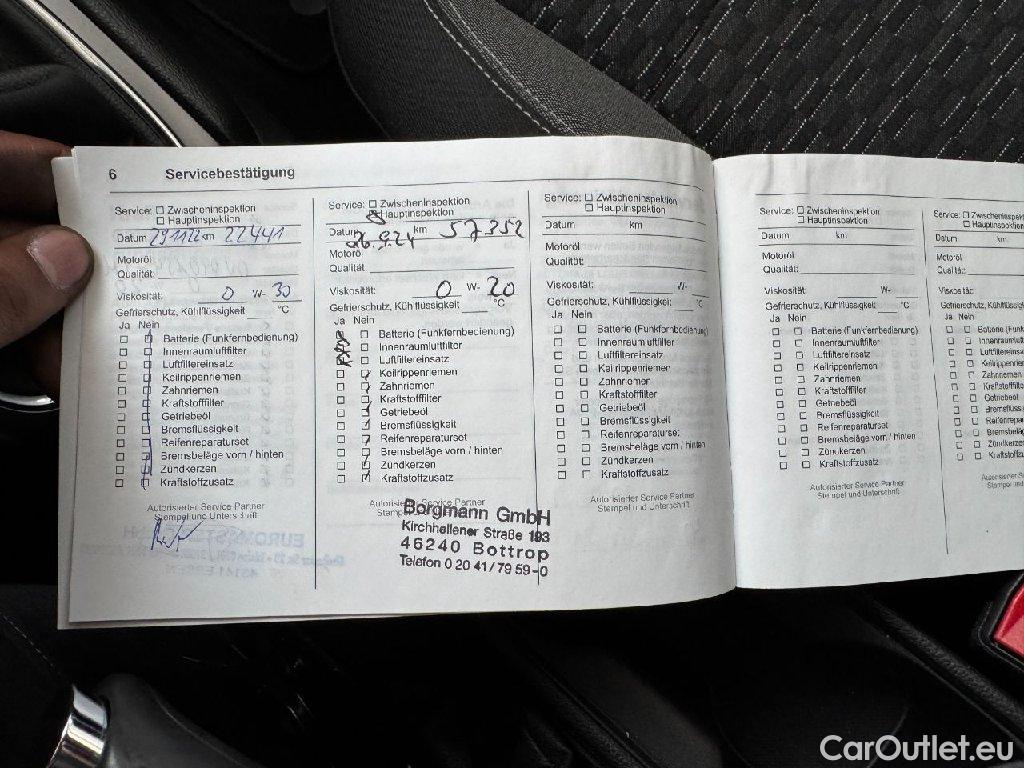 6 Servicebestätigung
Service: Zwischeninspektion
Hauptinspektion
Datum 29.11.22 km 22441
Motoröl
Qualität:
Viskosität: 0 W- 30
Gefrierschutz, Kühlflüssigkeit °C
Ja Nein
Batterie (Funkfernbedienung)
Innenraumluftfilter
Luftfiltereinsatz
Keilrippenriemen
Zahnriemen
Kraftstofffilter
Getriebeöl
Bremsflüssigkeit
Reifenreparaturset
Bremsbeläge vorn / hinten
Zündkerzen
Kraftstoffzusatz
Autorisierter Service Partner
Stempel und Unterschrift
Service: Zwischeninspektion
Hauptinspektion
Datum 26.9.24 km 57352
Motoröl
Qualität:
Viskosität: 0 W- 20
Gefrierschutz, Kühlflüssigkeit °C
Ja Nein
Batterie (Funkfernbedienung)
Innenraumluftfilter
Luftfiltereinsatz
Keilrippenriemen
Zahnriemen
Kraftstofffilter
Getriebeöl
Bremsflüssigkeit
Reifenreparaturset
Bremsbeläge vorn / hinten
Zündkerzen
Kraftstoffzusatz
Autorisierter Service Partner
Borgmann GmbH
Kirchhellener Straße 193
46240 Bottrop
Telefon 0 20 41/79 59-0
Service: Zwischeninspektion
Hauptinspektion
Datum km
Motoröl
Qualität:
Viskosität: W-
Gefrierschutz, Kühlflüssigkeit °C
Ja Nein
Batterie (Funkfernbedienung)
Innenraumluftfilter
Luftfiltereinsatz
Keilrippenriemen
Zahnriemen
Kraftstofffilter
Getriebeöl
Bremsflüssigkeit
Reifenreparaturset
Bremsbeläge vorn / hinten
Zündkerzen
Kraftstoffzusatz
Autorisierter Service Partner
Stempel und Unterschrift
Service: Zwischeninspektion
Hauptinspektion
Datum km
Motoröl
Qualität:
Viskosität: W-
Gefrierschutz, Kühlflüssigkeit °C
Ja Nein
Batterie (Funkfernbedienung)
Innenraumluftfilter
Luftfiltereinsatz
Keilrippenriemen
Zahnriemen
Kraftstofffilter
Getriebeöl
Bremsflüssigkeit
Reifenreparaturset
Bremsbeläge vorn / hinten
Zündkerzen
Kraftstoffzusatz
Autorisierter Service Partner
Stempel und Unterschrift
Service:
Datum
Motoröl
Qualität:
Viskosität:
Gefrierschutz,
Ja Nein
CarOutlet.eu